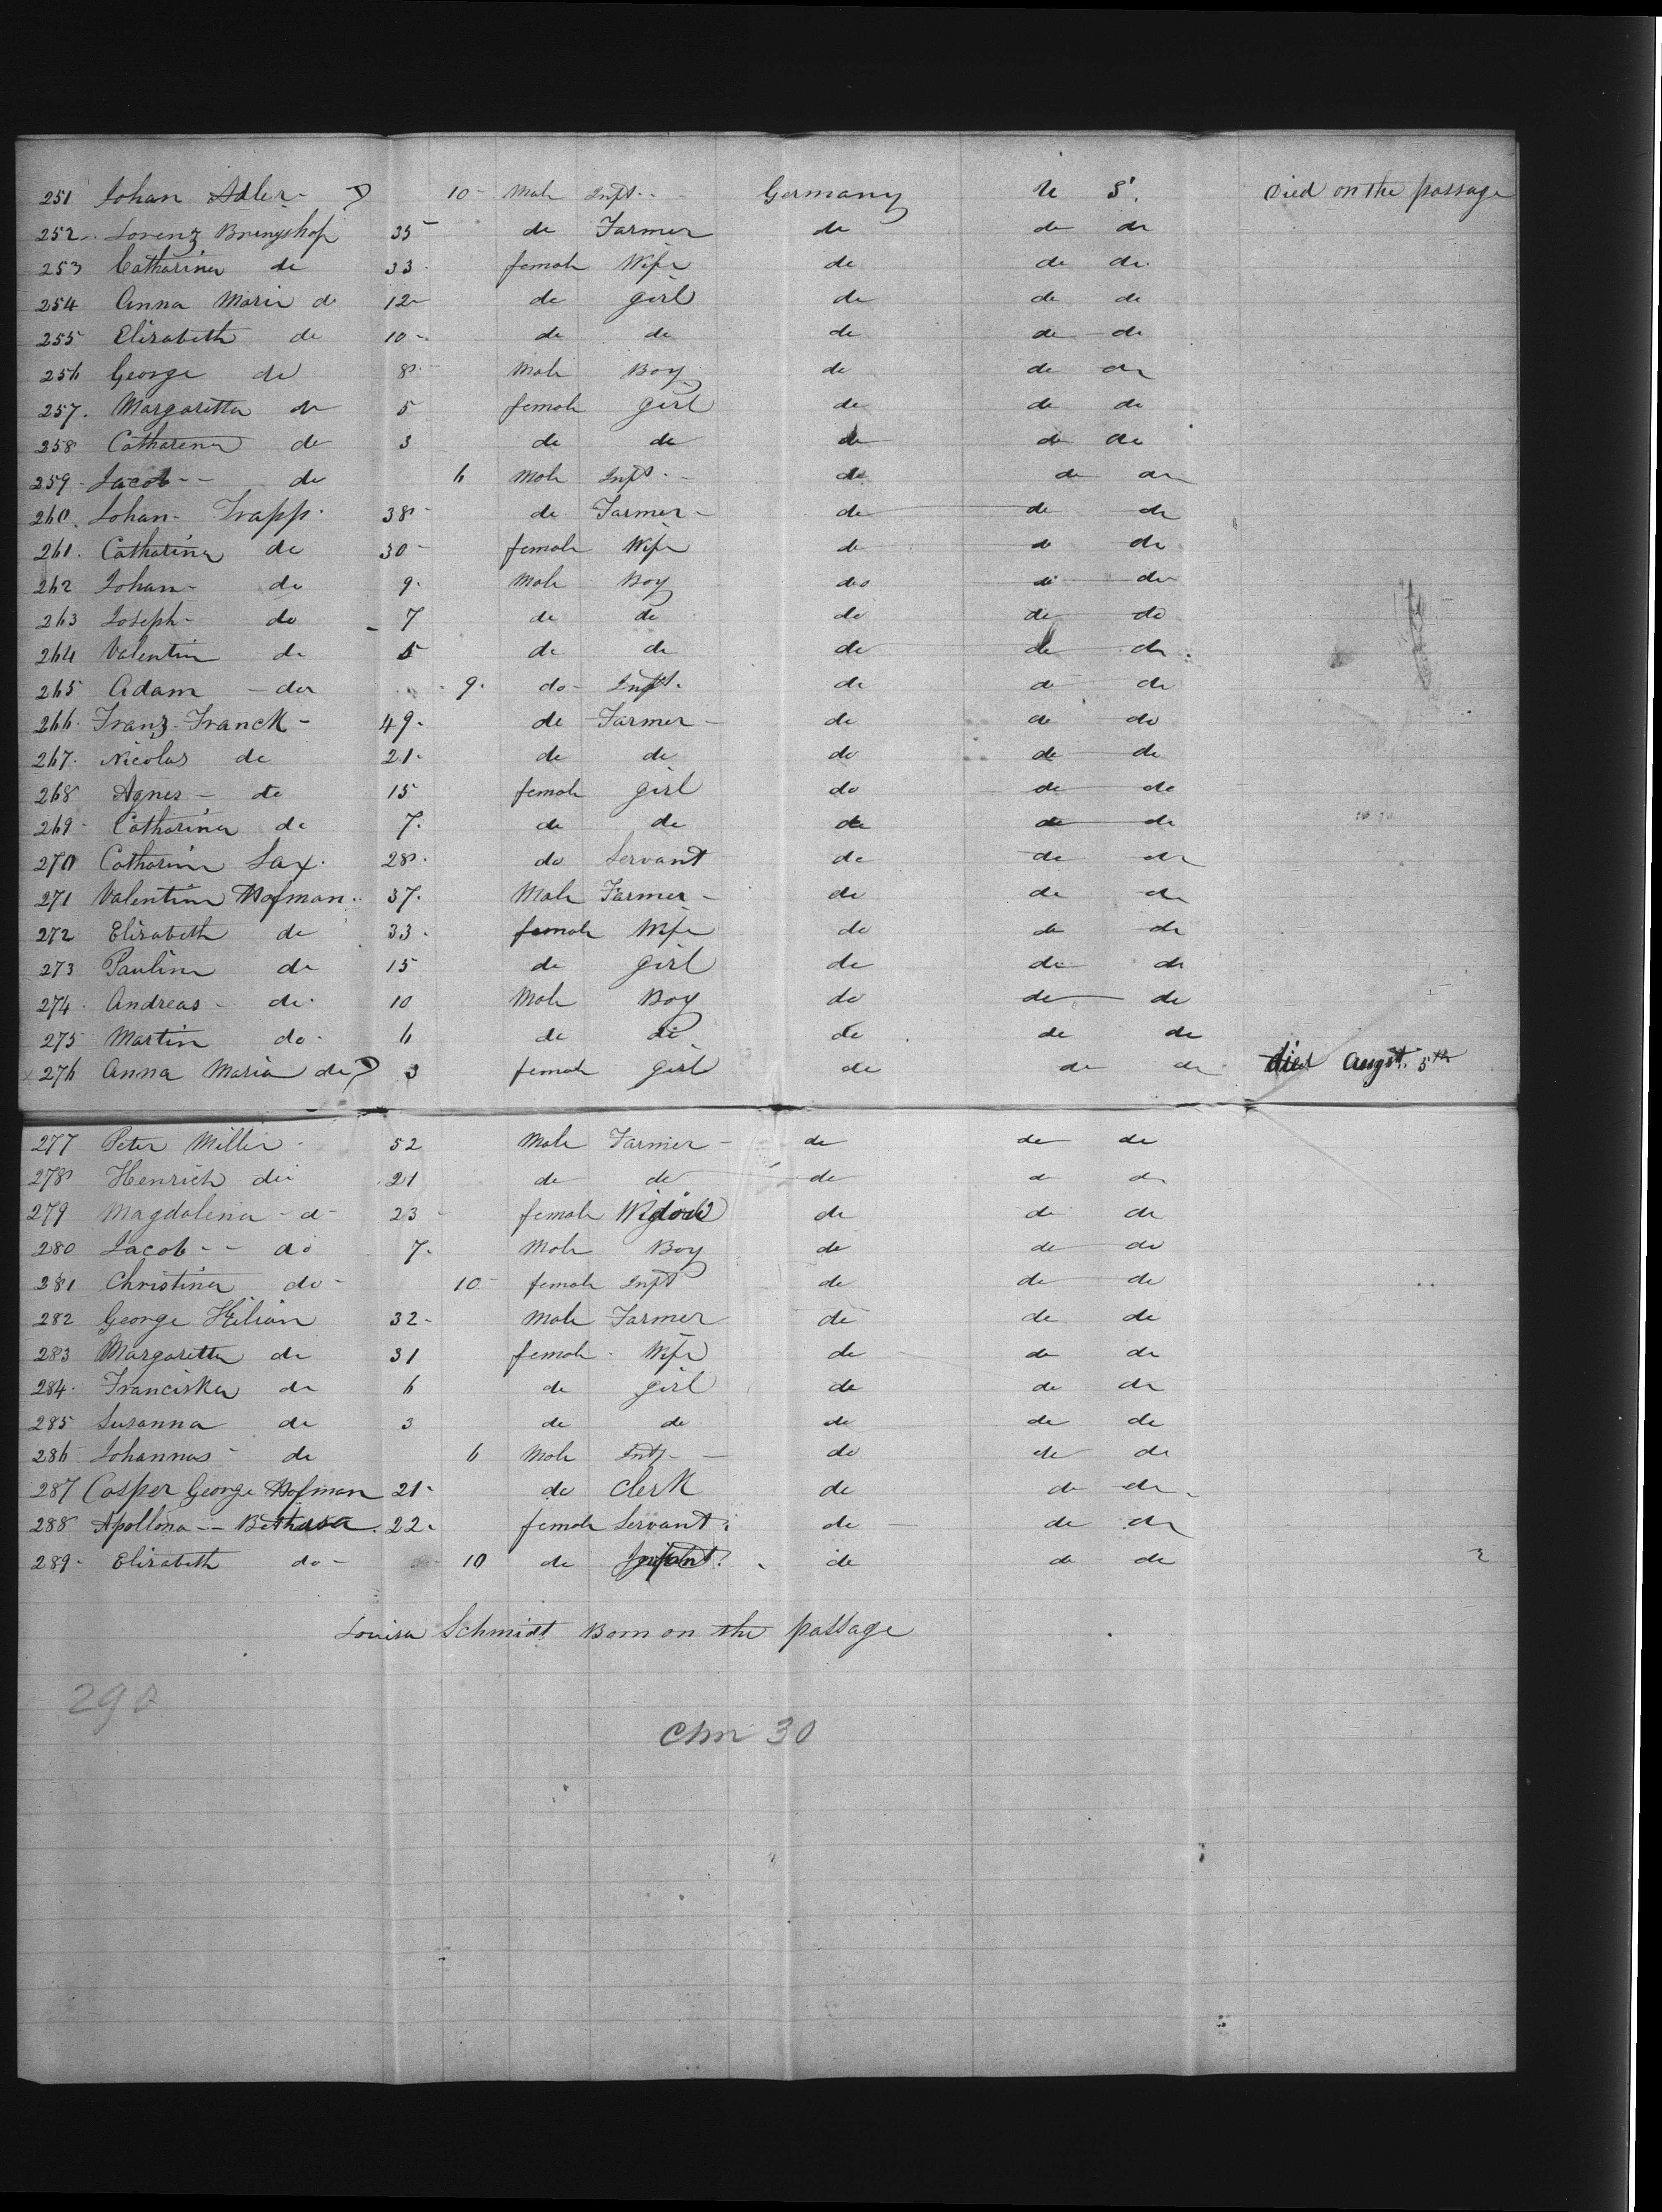 251 Johan Adler - D 10 - Male Inft. - Germany U S. Died on the passage
252 - Lorenz 35 - do Farmer do do do
253 Catharina do 33 - female Wife do do do
254 Anna Maria do 12 - do girl do do do
255 Elisabeth do 10 - do do do do do
256 George do 8 - Male Boy do do do
257. Margaretta do 5 female girl do do do
258 Catharina do 3 do do do do do
259 - Jacob - - do 6 Male Inft. - do do do
260. Johan - Trapp. 38 - do Farmer - do do do
261. Catharina do 30 - female Wife do do do
262 Johan - do 9. Male Boy do do do
263 Joseph - do - 7 do do do do do
264 Valentin do 5 do do do do do.
265 Adam - do 9. do - Inft. do do do
266. Franz - Franck - 49. do Farmer - do do do
267. Nicolas do 21. do do do do do
268 Agnes - do 15 female girl do do do
269 - Catharina do 7. do do do do do
270 Catharina Lax. 28. do Servant do do do
271 Valentin Hofman. 37. Male Farmer - do do do
272 Elisabeth do 33. female Wife do do do
273 Paulina do 15 do girl do do do
274. Andreas - do. 10 Male Boy do do do
275 Martin do. 6 do do do do do
x 276 Anna Maria do D 3 female girl do do do died Augst. 5th
277 Peter Miller - 52 Male Farmer - do do do
278 Henrich do 21 do do do do do
279 Magdalena - do 23 - female do do do
280 Jacob - - do 7. Male Boy do do do
281 Christina do - 10 - female Inft do do do
282 George Hilian 32 - Male Farmer do do do
283 Margaretta do 31 female - Wife do do do
284. Franciska do 6 do girl do do do
285 Susanna do 3 do do do do do
286 Johannas - do 6 Male Inft - - do do do
287 Casper George Hofman 21 - do Clerk do do do
288 Apollona - - 22. female Servant do do do
289 - Elisabeth do - 10 do Infant do do do
Louisa Schmidt Born on the passage
290
30